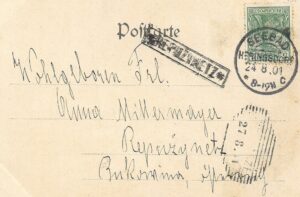 Postkarte
SEEBAD
HERINGSDORF
24 8.01
*8-9N C
*REPUŻYNETZ*
Wohlgeboren Frl.
Anna Mittermayer
Repużynetz
Bukowina,
27.8.